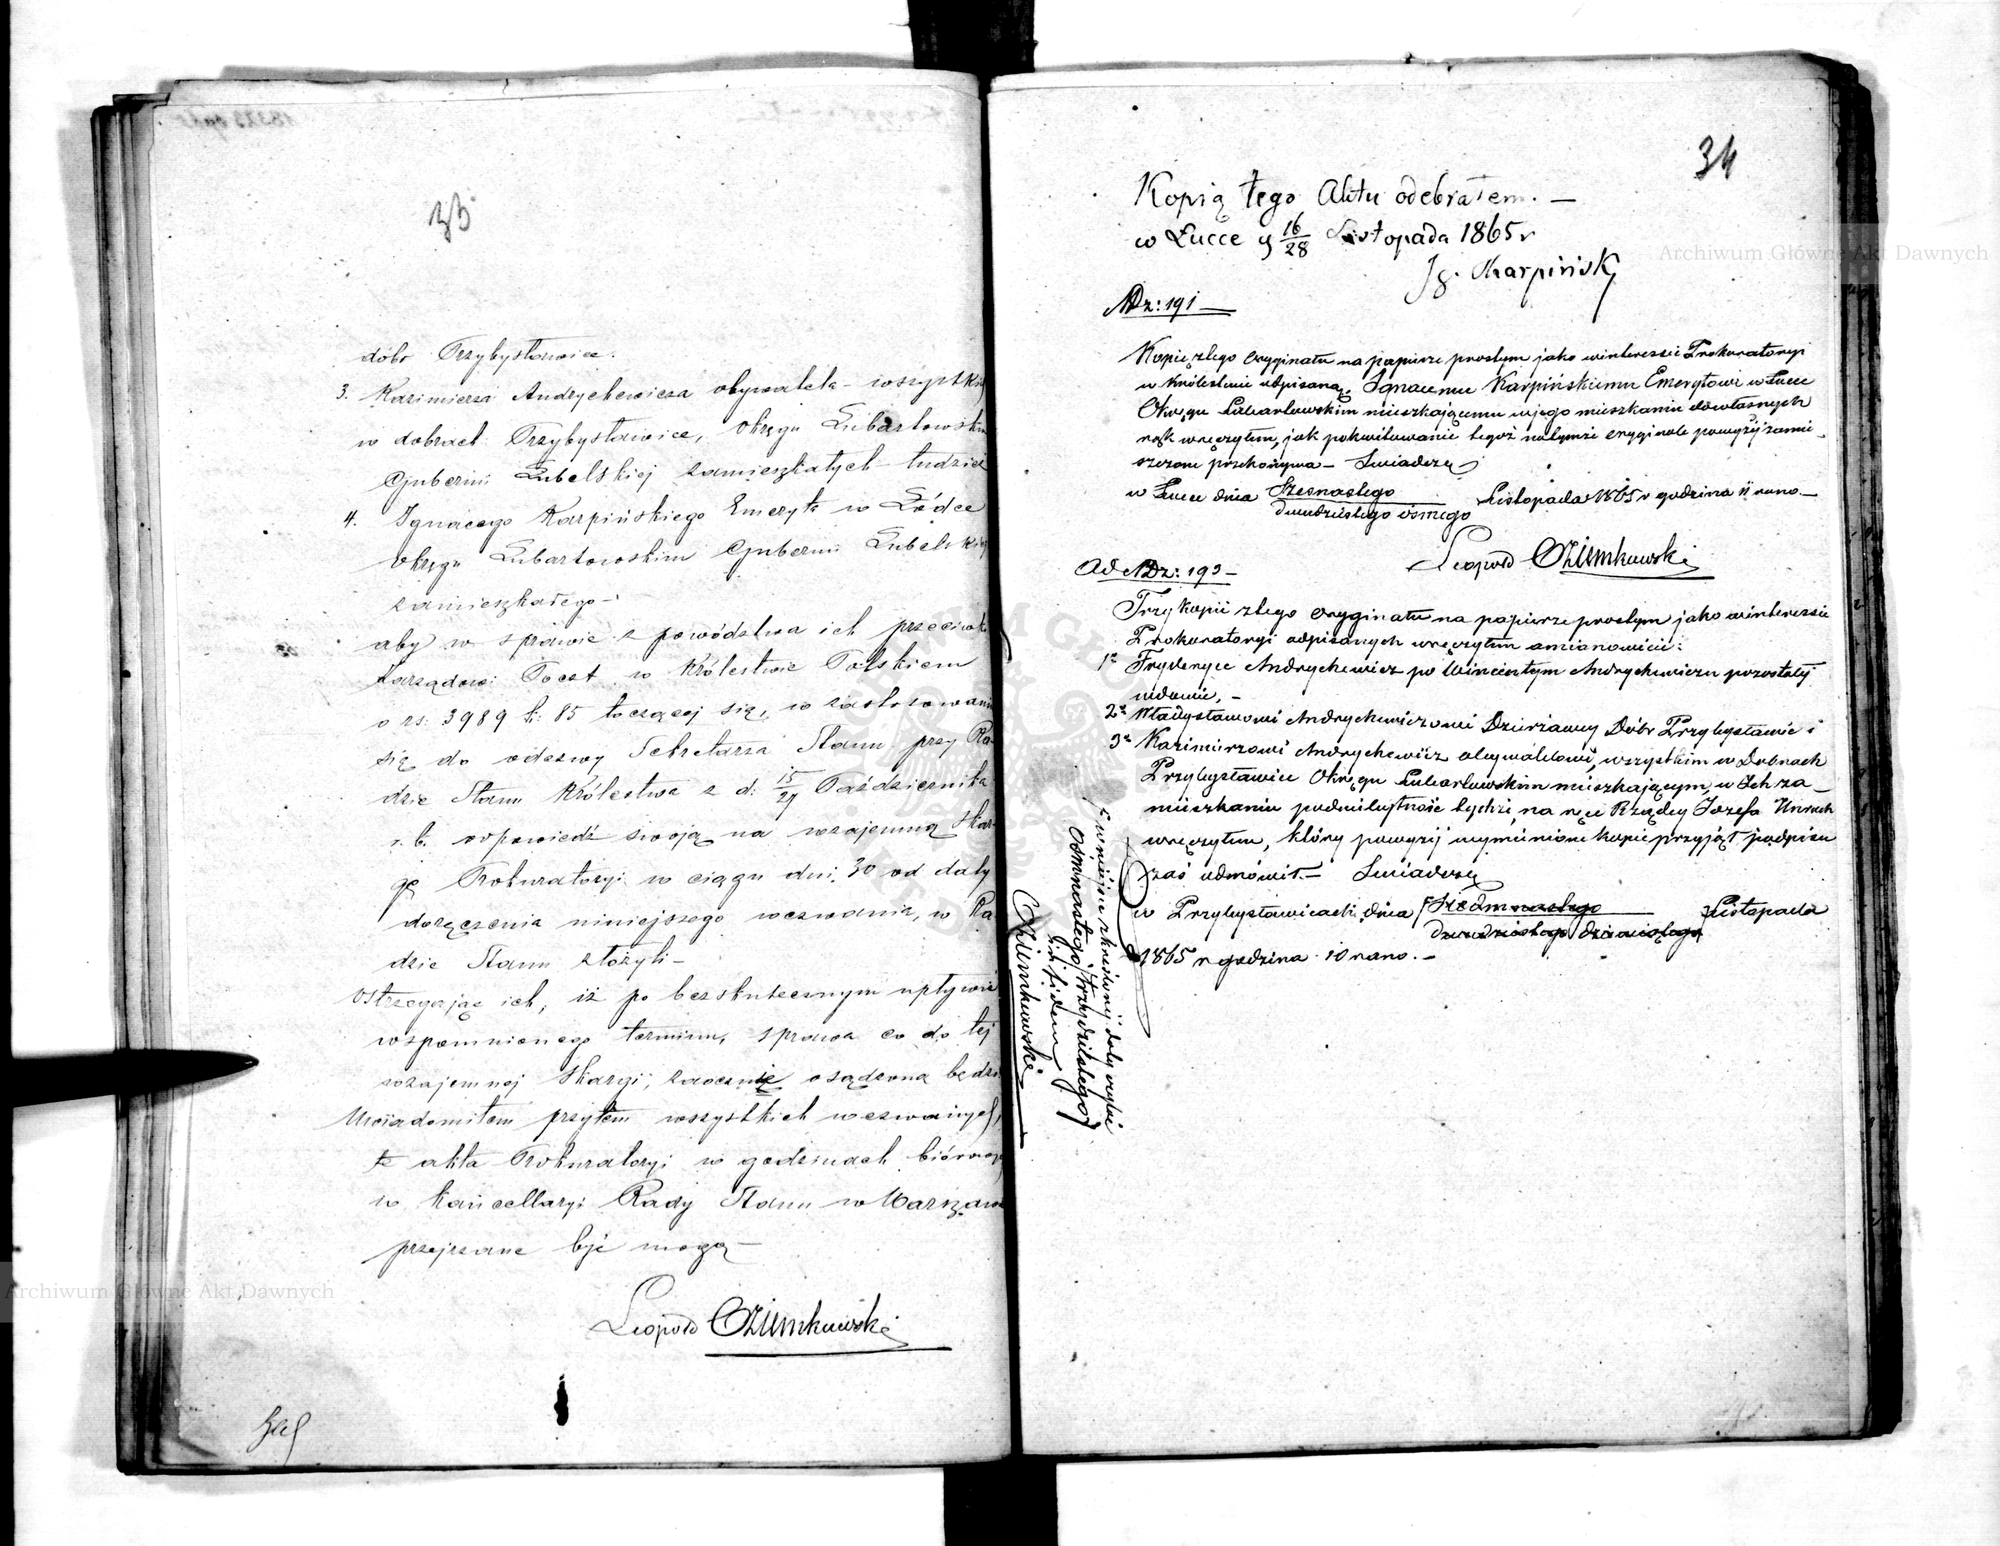 33
dóbr Przybysławice.
3. Kazimierza Andrychewicza obywatela – wszystkich
w dobrach Przybysławice, Okręgu Lubartowskim
Gubernii Lubelskiej zamieszkałych – tudzież
4. Ignacego Karpińskiego Emeryta w
Okręgu Lubartowskim Gubernii Lubelskiej
zamieszkałego –
aby w sprawie z powództwa ich przeciwko
Zarządowi Poczt w Królestwie Polskiem
o rs: 3989 k: 85 toczącej się, w zastosowaniu
się do odezwy Sekretarza Stanu przy Ra-
dzie Stanu Królestwa z d: 15/27 Października
r. b. odpowiedź swoją na wzajemną skar-
gę Prokuratoryi w ciągu dni 30 od daty
doręczenia niniejszego wezwania, w Ra-
dzie Stanu złożyli –
Ostrzegając ich, iż po bezskutecznym upływie
wspomnionego terminu, sprawa co do tej
wzajemnej skargi, zaocznie osądzoną będzie
Uwiadomiłem przytem wszystkich wezwanych,
że akta Prokuratoryi w godzinach biórowych
w Kancellaryi Rady Stanu w Warszawie
przejrzane być mogą –
Leopold Oziemkowski
34
Kopią tego Aktu odebrałem. –
w Łucce d 16/28 Listopada 1865 r
Ig. Karpiński
NDz: 191 –
Kopię z tego oryginału na papierze prostym jako w interessie Prokuratoryi
w Królestwie odpisaną, Ignacemu Karpińskiemu Emerytowi w Łucce
Okręgu Lubartowskim mieszkającemu w jego mieszkaniu do własnych
rąk wręczyłem, jak pokwitowanie tegoż na tymże oryginale powyżej zamie-
szczone przekonywa – Świadczę
w Łucce dnia Szesnastego / dwudziestego ósmego Listopada 1865 r godzina 11 rano. –
Leopold Oziemkowski
Ad NDz: 193 –
Trzy kopii z tego oryginału na papierze prostym jako w interessie
Prokuratoryi odpisanych wręczyłem a mianowicie:
1e Fryderyce Andrychewicz po Wincentym Andrychewiczu pozostałej
wdowie, –
2e Władysławowi Andrychewiczowi Dzierżawcy Dóbr Przybysławic i
3e Kazimierzowi Andrychewicz obywatelowi, wszystkim w Dobrach
Przybysławice Okręgu Lubartowskim mieszkającym, w Ich za-
mieszkaniu pod nieobytność tychże, na ręce Rządcy Józefa
wręczyłem, który powyżej wymienione kopie przyjął podpisu
zaś odmówił. – Świadczę
w Przybysławicach dnia Siedmnastego / dwudziestego dziewiątego Listopada
1865 r godzina 10 rano. –
w miejscu skreślonej daty
Osmnastego / trzydziestego
Oziemkowski
Archiwum Główne Akt Dawnych
Archiwum Główne Akt Dawnych